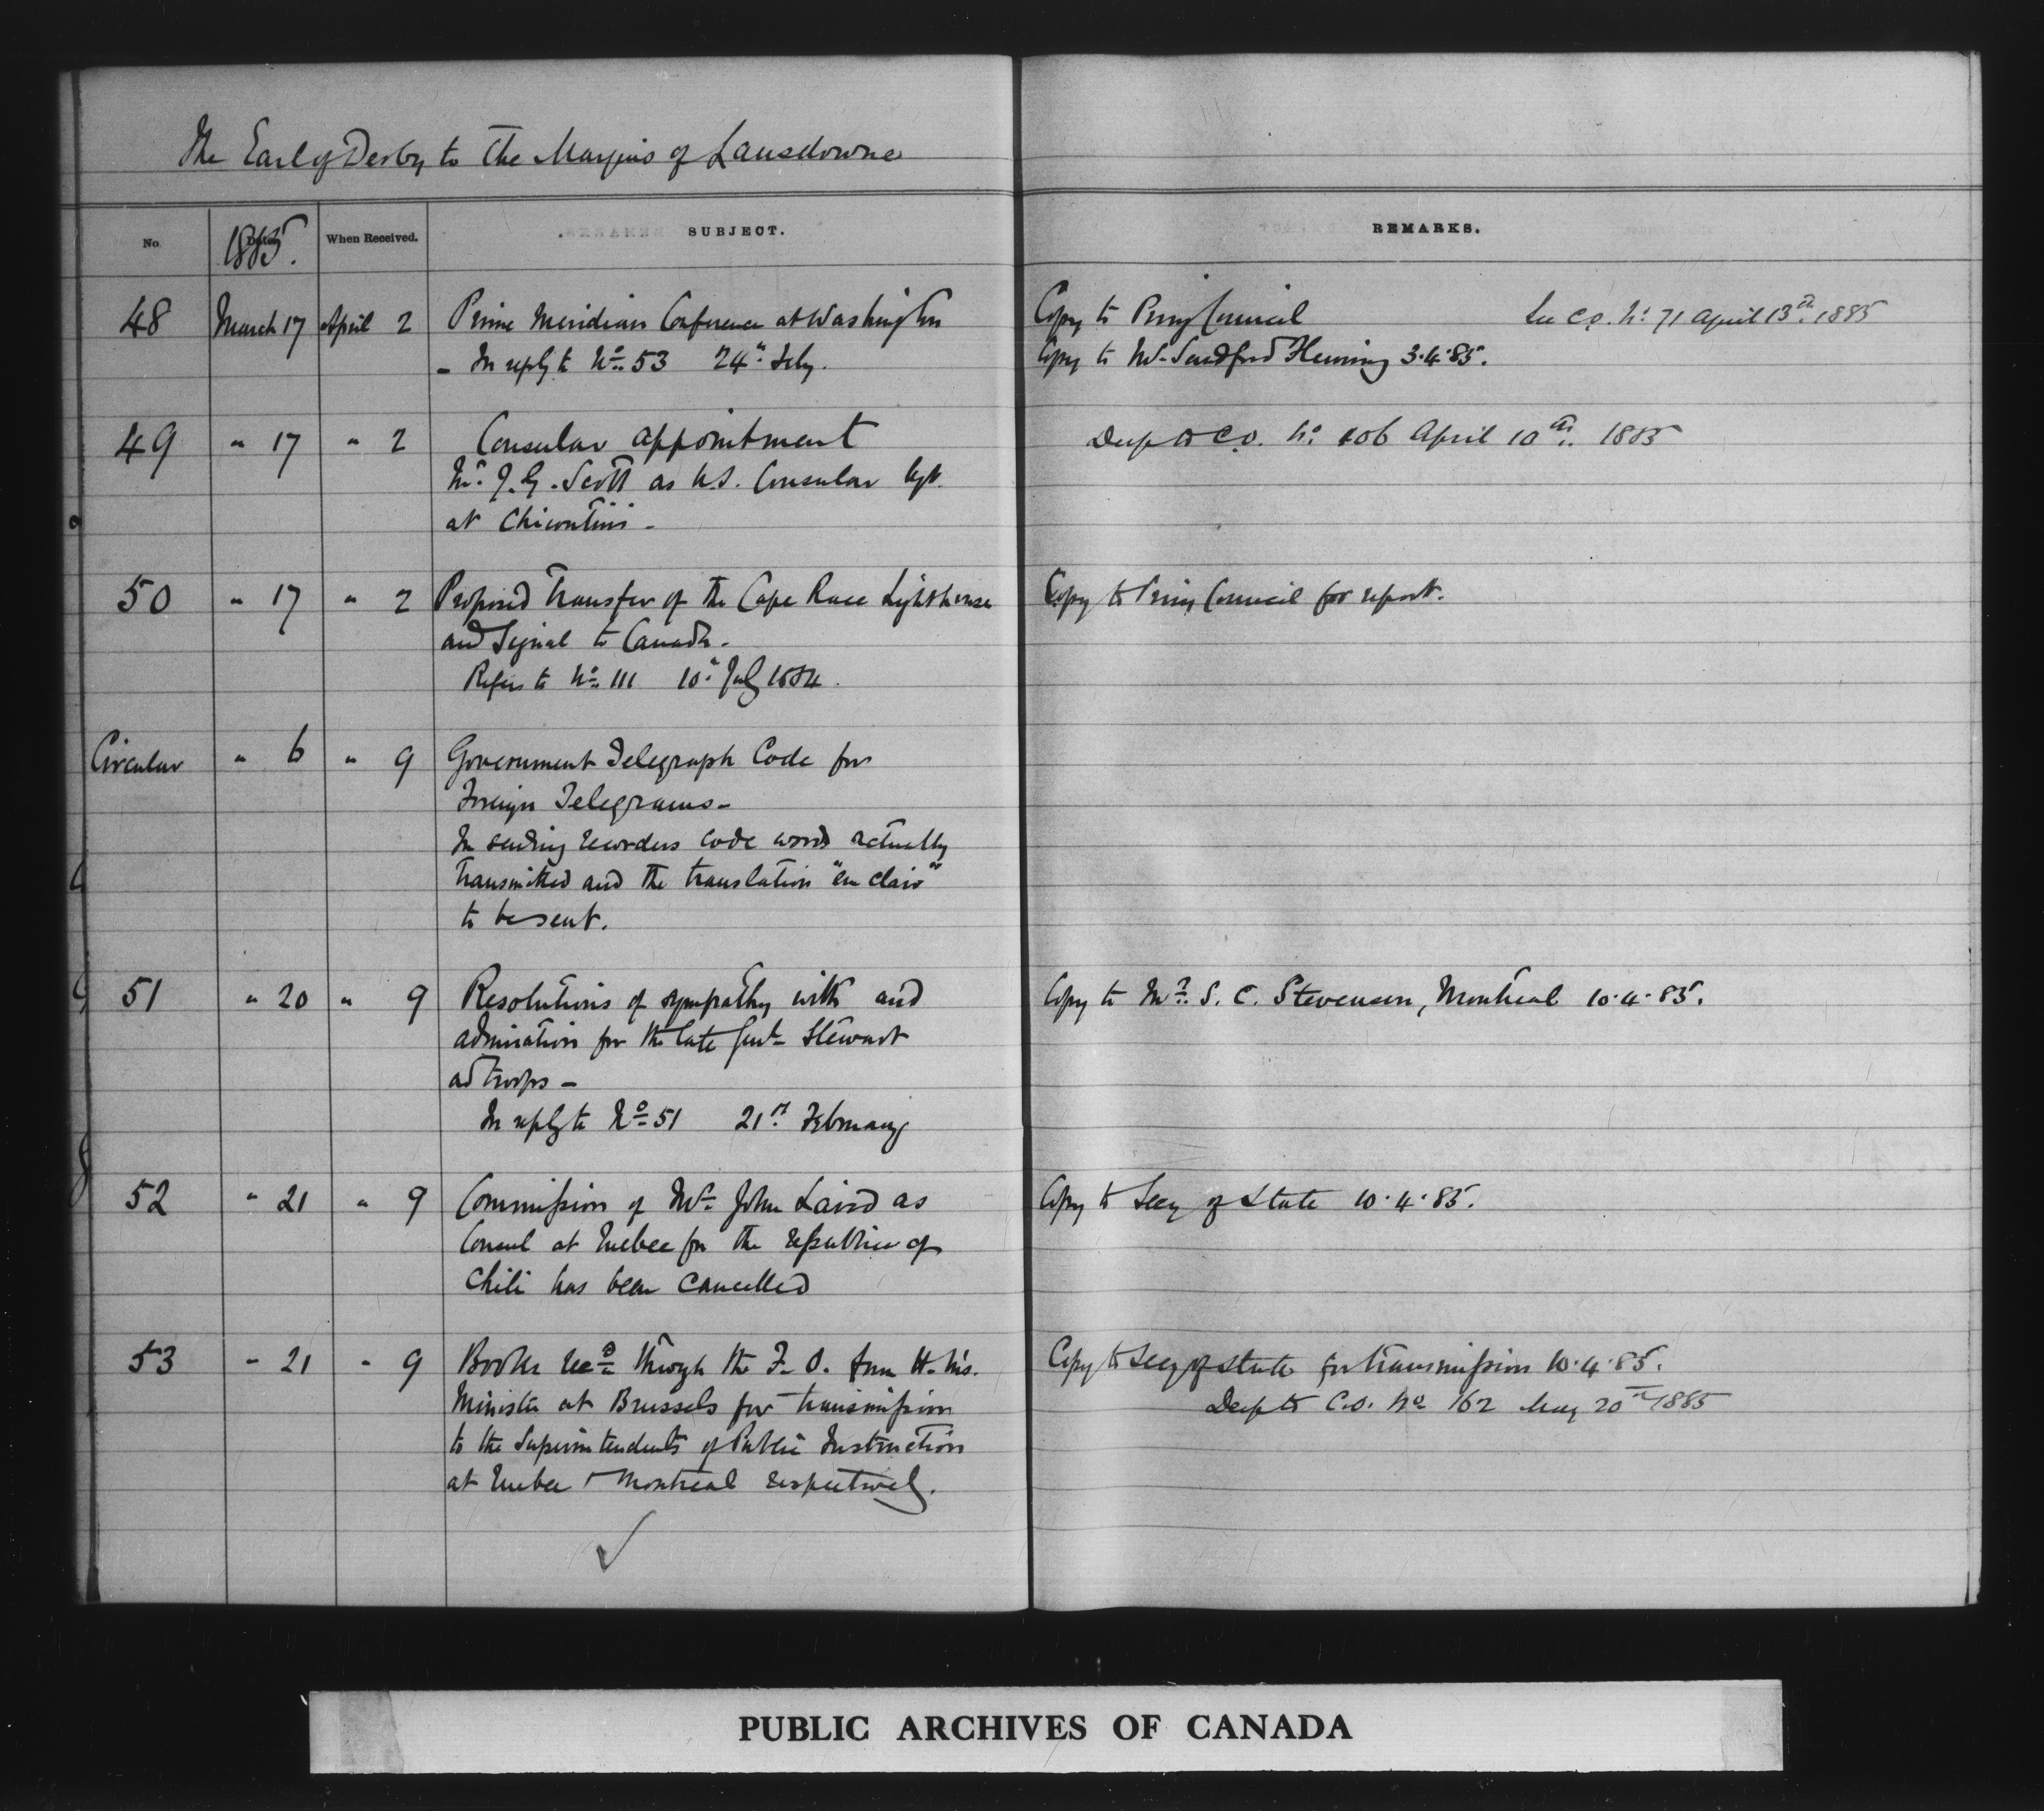 The Earl of Derby to the Marquis of Lansdowne
No. 1885. When Received. SUBJECT. REMARKS.
48 March 17 April 2 Prime Meridian Conference at Washington Copy to Privy Council See C.O. No. 71 April 13th. 1885
- In reply to No. 53 24" Feby. Copy to Mr. Sandford Fleming 3.4.85.
49 " 17 " 2 Consular appointment Desp to C.O. No. 106 April 10th. 1885
Mr. J.G. Scott as U.S. Consular Agt.
at Chicoutimi -
50 " 17 " 2 Proposed Transfer of the Cape Race Lighthouse Copy to Privy Council for report.
and Signal to Canada.
Refers to No. 111 10" July 1884.
Circular " 6 " 9 Government Telegraph Code for
Foreign Telegrams -
In sending recorders code words actually
transmitted and the translation "en clair"
to be sent.
51 " 20 " 9 Resolutions of sympathy with and Copy to Mr. S. C. Stevenson, Montreal 10.4.85.
admiration for the late Genl. Stewart
ad troops -
In reply to No. 51 21st February
52 " 21 " 9 Commission of Mr. John Laird as Copy to Secy of State 10.4.85.
Consul at Quebec for the republic of
Chili has been cancelled
53 " 21 " 9 Books recd. through the F.O. from H.M's. Copy to Secy of State for transmission 10.4.85.
Minister at Brussels for transmission Desp to C.O. No. 162 May 20th 1885
to the Superintendents of Public Instruction
at Quebec & Montreal respectively.
PUBLIC ARCHIVES OF CANADA